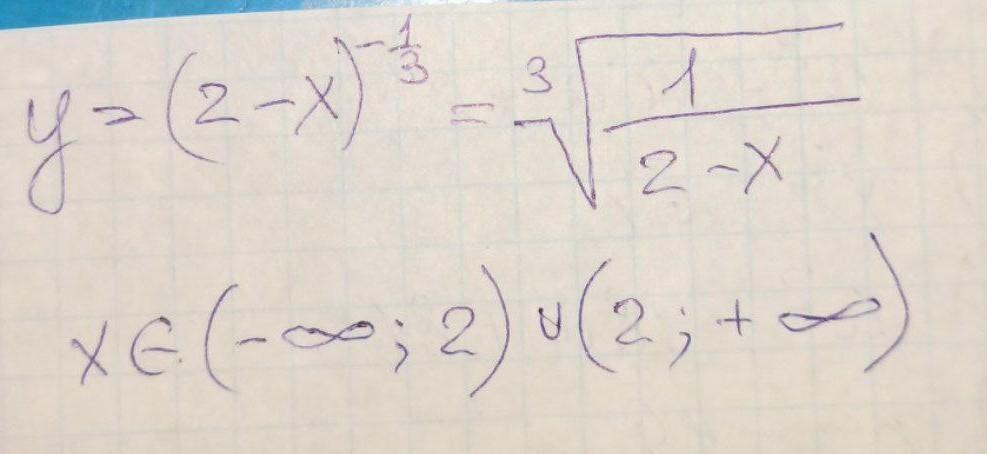 y = (2 - x)^{-\frac{1}{3}} = \sqrt[3]{\frac{1}{2 - x}}
x ∈ (-∞; 2) ∪ (2; +∞)